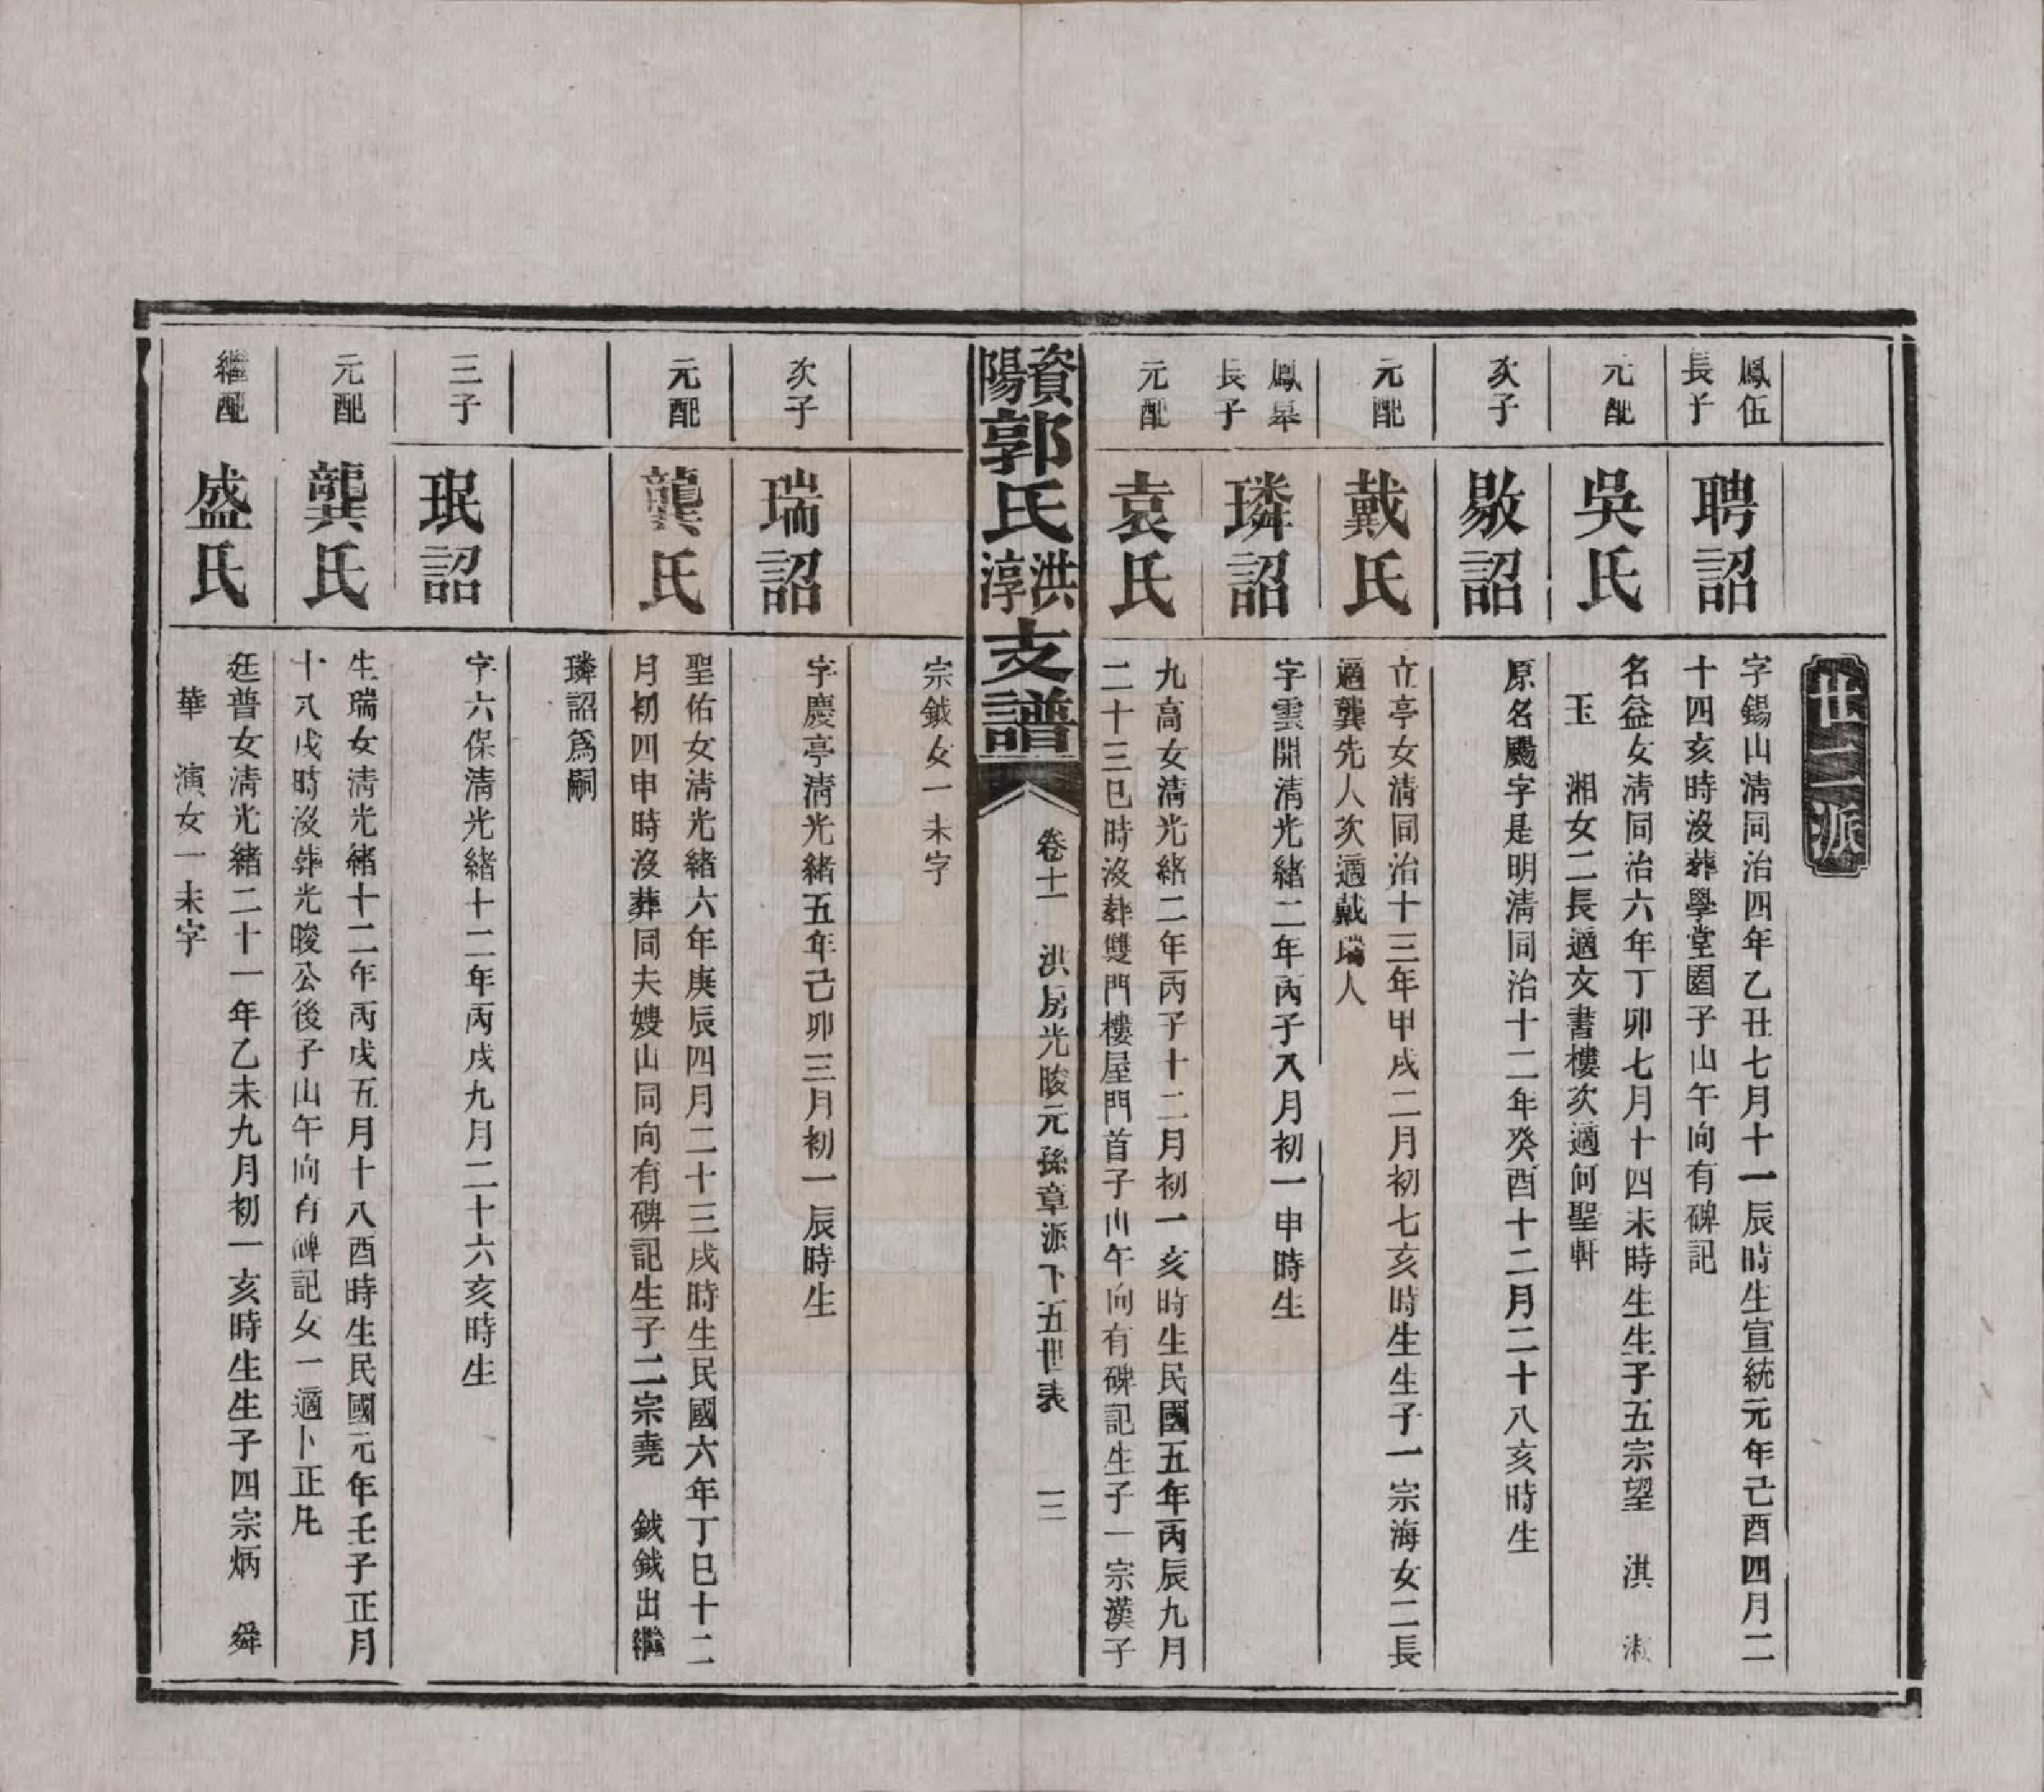 廿二派
鳳伍
長子
聘詔
字錫山淸同治四年乙丑七月十一辰時生宣統元年己酉四月二
十四亥時沒葬學堂園子山午向有碑記
元配
吳氏
名益女淸同治六年丁卯七月十四未時生生子五宗望 淇 淑
玉 湘女二長適文書樓次適何聖軒
次子
敭詔
原名颺字是明淸同治十二年癸酉十二月二十八亥時生
元配
戴氏
立亭女淸同治十三年甲戌二月初七亥時生生子一宗海女二長
適龔先人次適戴瑞人
鳳皋
長子
璘詔
字雲開淸光緖二年丙子八月初一申時生
元配
袁氏
九高女淸光緖二年丙子十二月初一亥時生民國五年丙辰九月
二十三巳時沒葬雙門樓屋門首子山午向有碑記生子一宗漢子
資陽郭氏洪淳支譜
卷十一 洪房光晙元孫章派下五世表 三
宗鉞女一未字
次子
瑞詔
字慶亭淸光緖五年己卯三月初一辰時生
元配
龔氏
聖佑女淸光緖六年庚辰四月二十三戌時生民國六年丁巳十二
月初四申時沒葬同夫嫂山同向有碑記生子二宗堯 鉞鉞出繼
璘詔爲嗣
三子
珉詔
字六保淸光緖十二年丙戌九月二十六亥時生
元配
龔氏
生瑞女淸光緖十二年丙戌五月十八酉時生民國元年壬子正月
十八戌時沒葬光晙公後子山午向有碑記女一適卜正凡
繼配
盛氏
廷普女淸光緖二十一年乙未九月初一亥時生生子四宗炳 舜
華 演女一未字